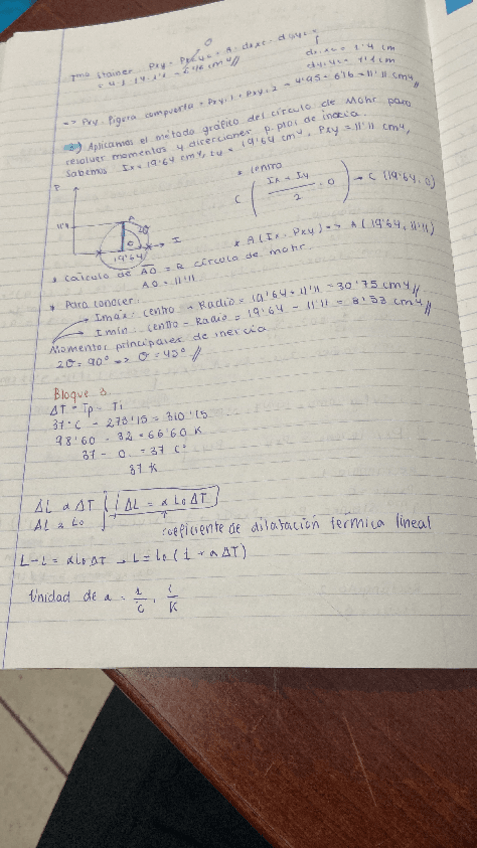 Tma Stainer. Pxy =
0
dx1x2 = 1'4 cm
=> Pxy. Figura compuesta = Pxy,1 + Pxy,2 = 4'95 + 6'16 = 11'11 cm4
3) Aplicamos el método gráfico del círculo de Mohr para
resolver momentos y direcciones p.ptoi de inercia.
Sabemos Ix = 19'64 cm4, Iy = 19'64 cm4, Pxy = 11'11 cm4,
* Centro
C ( Ix + Iy / 2 , 0 ) → C (19'64, 0)
P
A
2θ
I
19'64
* A (Ix, Pxy) => A (19'64, 11'11)
* Cálculo de AO = R círculo de mohr
AO = 11'11
* Para conocer:
Imáx: centro + Radio = 19'64 + 11'11 = 30'75 cm4//
Imín: centro - Radio = 19'64 - 11'11 = 8'53 cm4//
Momentos principales de inercia
2θ = 90° => θ = 45°//
Bloque 3.
ΔT = Tp - Ti
37°C - 273'15 = 310'15
98'60 - 32 = 66'60 K
37 - 0 = 37 C°
37 K
ΔL α ΔT
ΔL α Lo
ΔL = α Lo ΔT
coeficiente de dilatación térmica lineal
L-L = αLo ΔT → L = Lo (1 + α ΔT)
Unidad de α = 1/C, 1/K